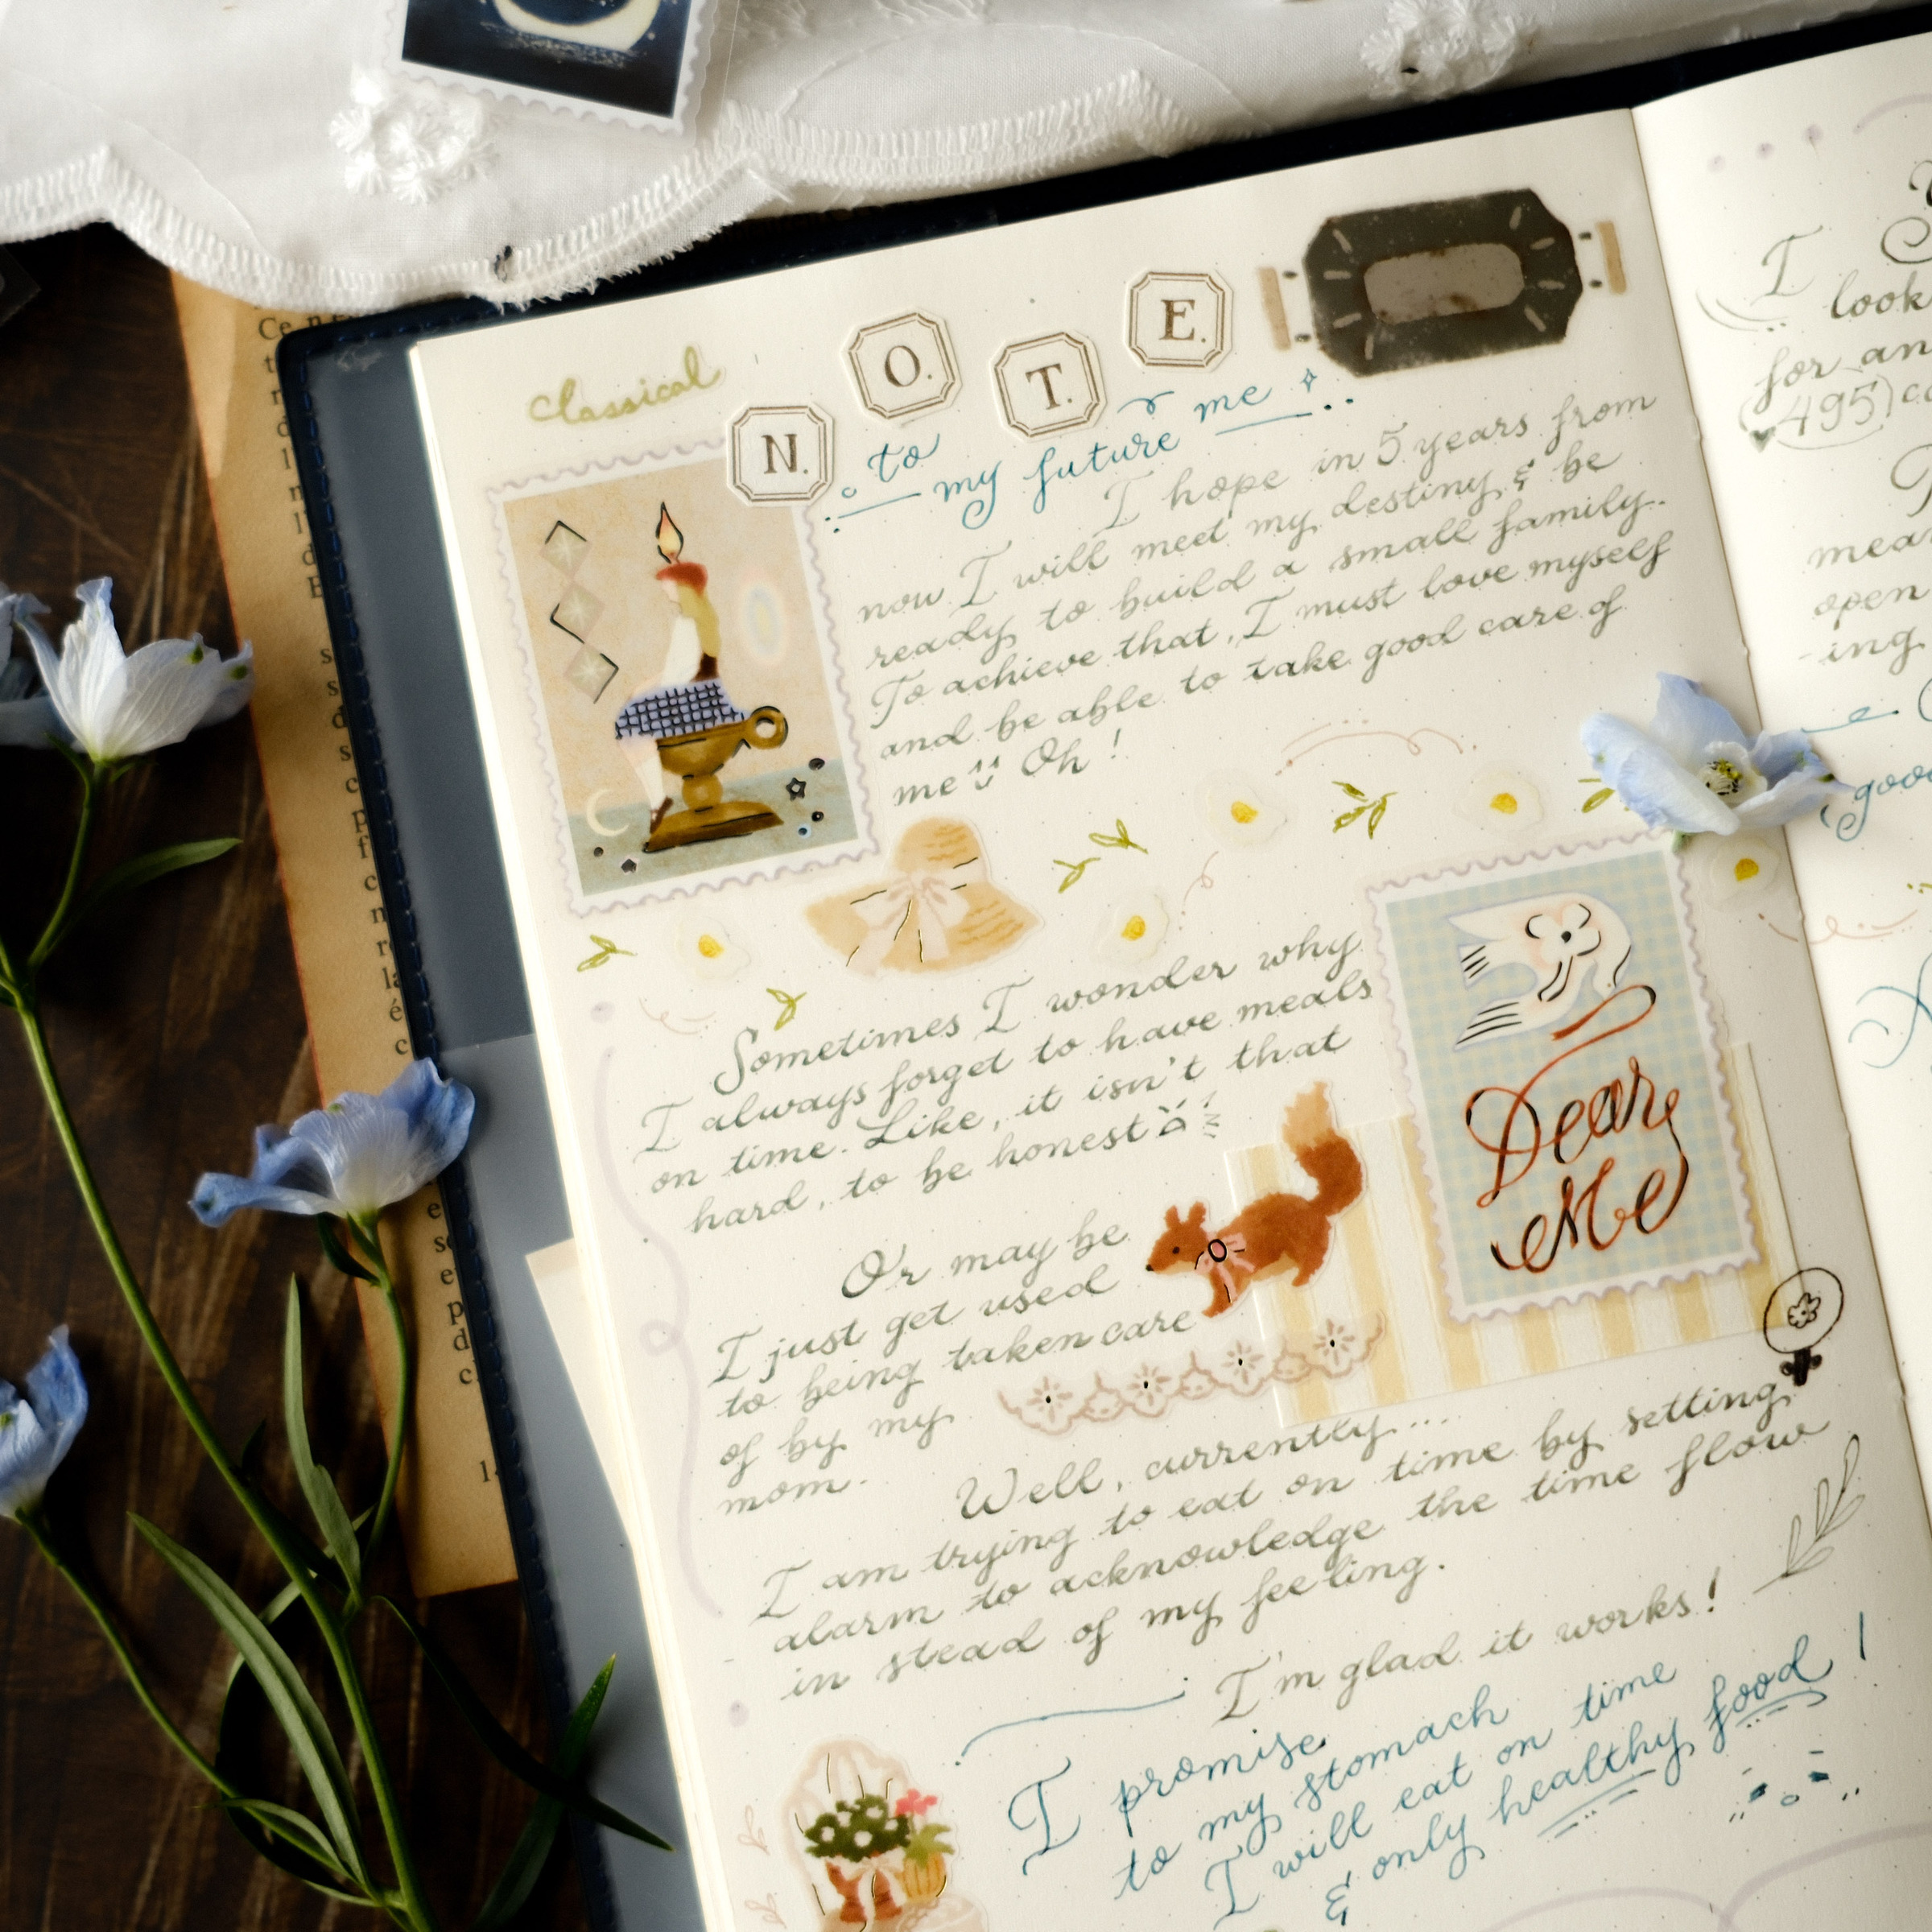 classical
N. O. T. E.
to
my future me
I hope in 5 years from
now I will meet my destiny & be
ready to build a small family.
To achieve that, I must love myself
and be able to take good care of
me Oh!
Sometimes I wonder why
I always forget to have meals
on time. Like, it isn't that
hard, to be honest
Dear
Me
Or may be
I just get used
to being taken care
of by my
mom.
Well, currently...
I am trying to eat on time by setting
alarm to acknowledge the time flow
in stead of my feeling.
I'm glad it works!
I promise
to my stomach
I will eat on time
& only healthy food!
I
look
for an
495
mean
open
-ing
good